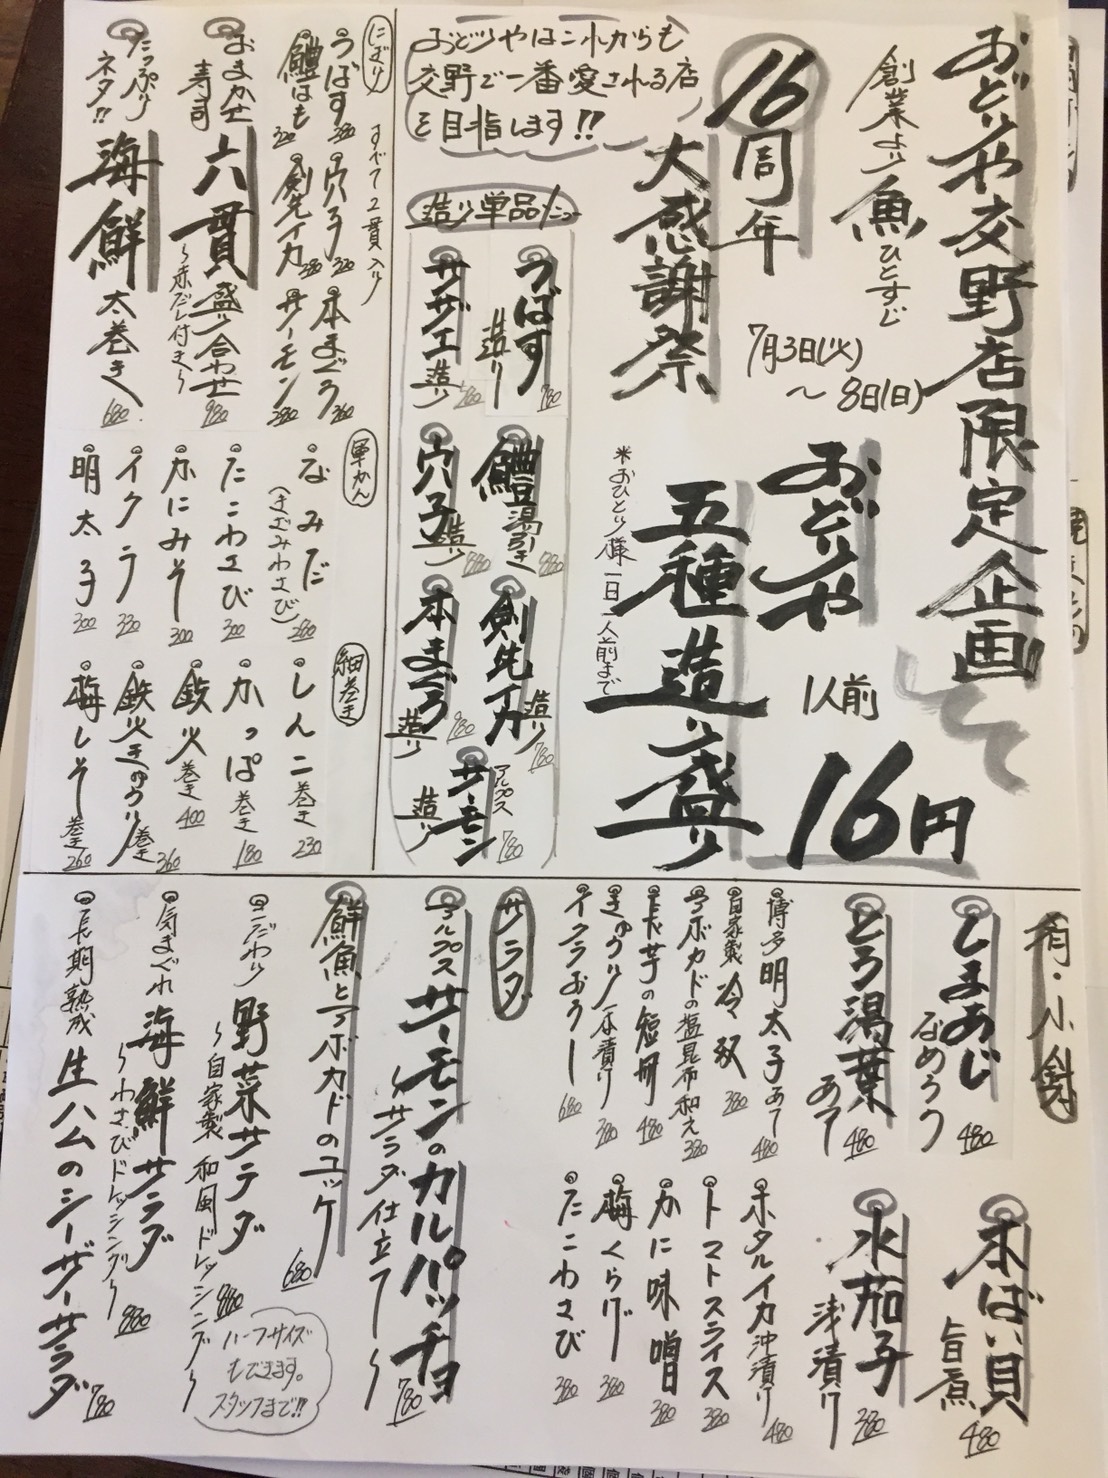 おどりや交野店限定企画
創業より魚ひとすじ
16周年
大感謝祭
7月3日(火)
～8日(日)
おどりや
五種造り盛り
1人前
16円
※おひとり様一日一人前まで
おどりやはこれからも
交野で一番愛される店
を目指します!!
造り単品メニュー
つばす造り 780
サザエ造り
鱧湯引き 880
穴子造り 880
剣先イカ造り 780
本まぐろ造り 980
アルプスサーモン造り 780
にぎり
すべて2貫入り
うばす 380
穴子 320
本まぐろ 360
鱧はも 320
剣先イカ 380
サーモン 380
おまかせ寿司六貫盛り合わせ 980
～赤だし付き～
たっぷりネタ!!海鮮太巻き 680
軍かん
なみだ 280
(きざみわさび)
たこわさび 300
かにみそ 300
イクラ 380
明太子 300
細巻き
しんこ巻き 230
かっぱ巻き 180
鉄火巻き 400
鉄火きゅうり巻き 360
梅しそ巻き 260
肴・小鉢
しまあじなめろう 480
本ばい貝旨煮 480
とろ湯葉あて 480
水茄子浅漬け 380
博多明太子あて 480
ホタルイカ沖漬け 480
自家製冷奴 380
トマトスライス 380
アボカドの塩昆布和え 380
かに味噌 380
長芋の短冊 480
梅くらげ 380
きゅうり一本漬け 380
たこわさび 380
イクラおろし 680
サラダ
アルプスサーモンのカルパッチョ 780
～サラダ仕立て～
鮮魚とアボカドのユッケ 680
こだわり野菜サラダ 880
～自家製和風ドレッシング～
気まぐれ海鮮サラダ 880
～わさびドレッシング～
長期熟成生ハムのシーザーサラダ 780
ハーフサイズ
もできます。
スタッフまで!!